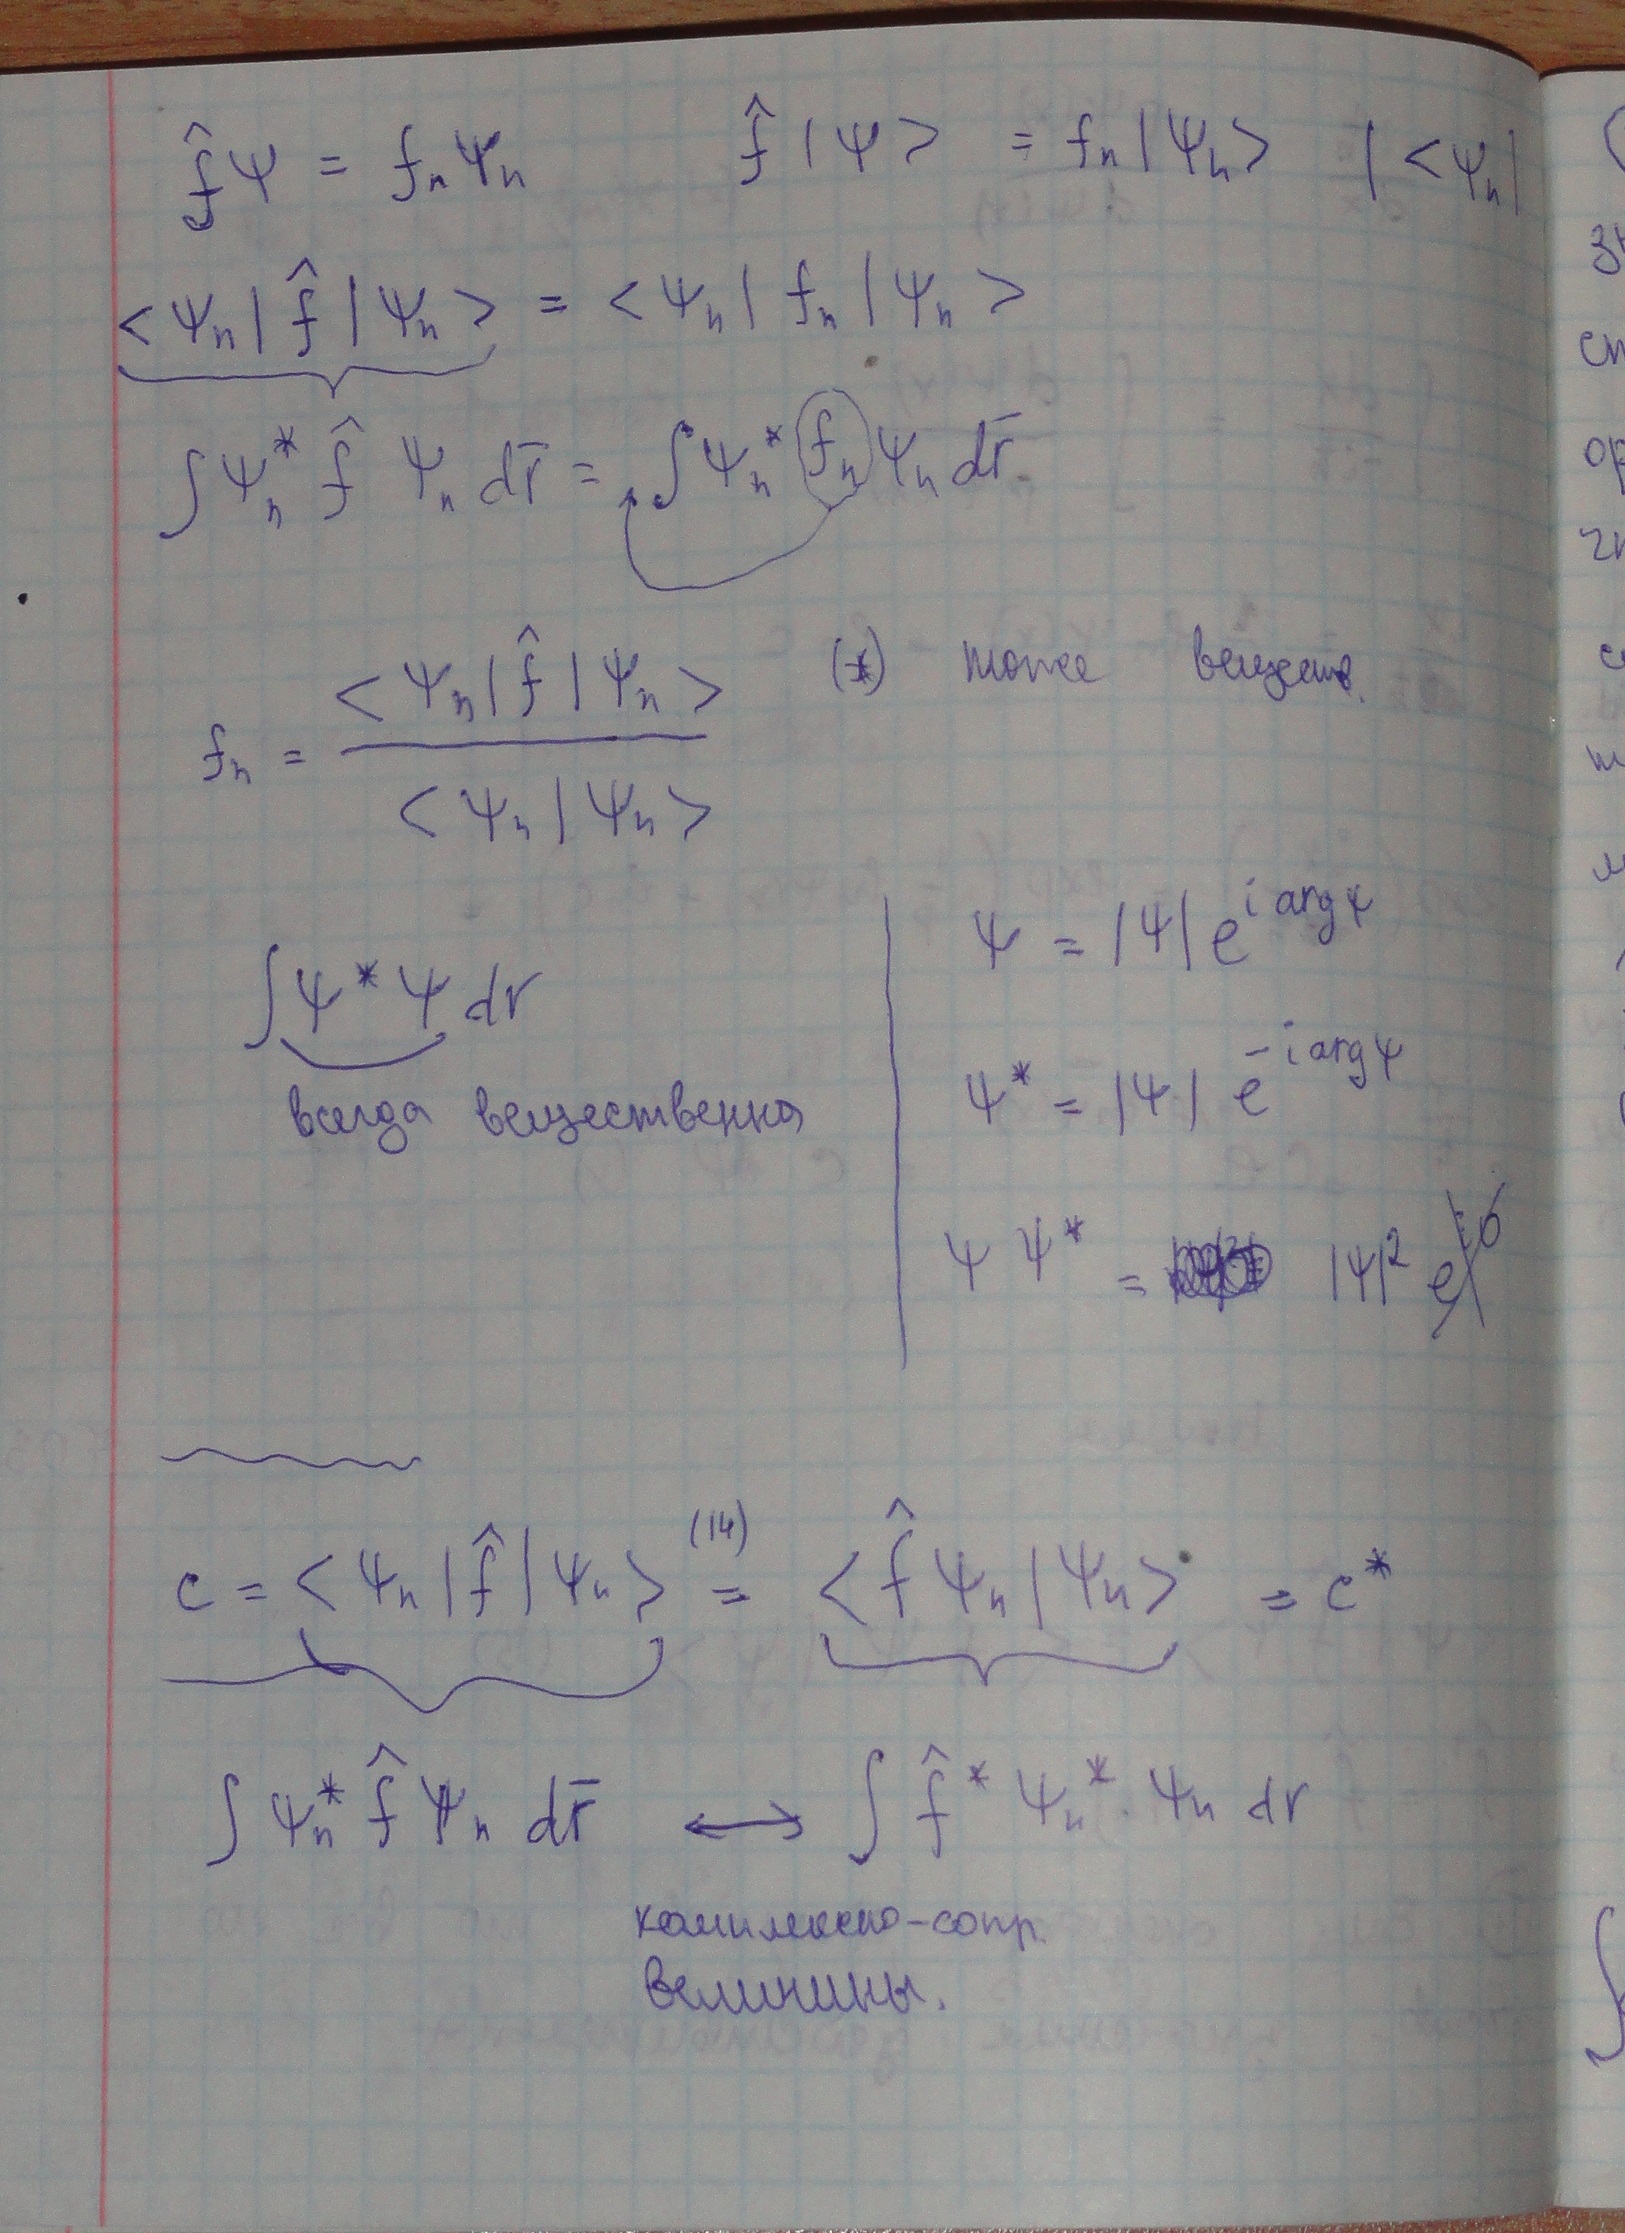 f̂ Ψ = fₙ Ψₙ    f̂ |Ψ> = fₙ |Ψₙ>    | <Ψₙ|
<Ψₙ| f̂ |Ψₙ> = <Ψₙ| fₙ |Ψₙ>
∫ Ψₙ* f̂ Ψₙ dr̄ = ∫ Ψₙ* fₙ Ψₙ dr̄
fₙ = <Ψₙ| f̂ |Ψₙ> / <Ψₙ|Ψₙ>    (*) тоже веществ.
∫ Ψ* Ψ dr
всегда вещественна
Ψ = |Ψ| e^{i arg Ψ}
Ψ* = |Ψ| e^{-i arg Ψ}
Ψ Ψ* = |Ψ|²
c = <Ψₙ| f̂ |Ψₙ> (14) = <f̂ Ψₙ|Ψₙ> = c*
∫ Ψₙ* f̂ Ψₙ dr̄ ↔ ∫ f̂* Ψₙ* · Ψₙ dr
комплексно-сопр.
величины.